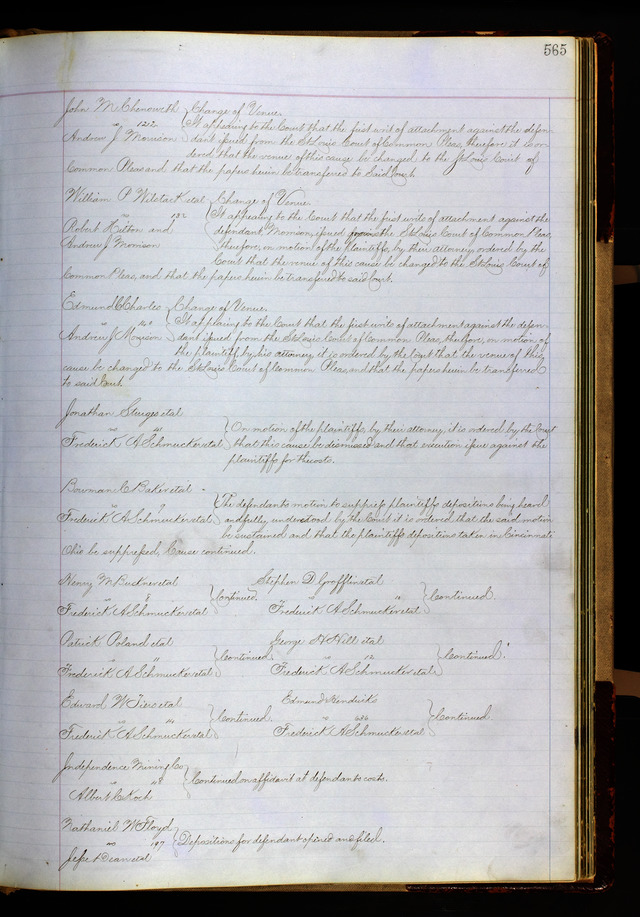 565
John M Chenowith Change of Venue.
vs 1212 It appearing to the Court that the first writ of attachment against the defen-
Andrew J Morrison dant issued from the St Louis Court of Common Pleas, therefore it is or-
dered that the venue of this cause be changed to the St Louis Court of
Common Pleas and that the papers herein be transferred to said Court
William P etal Change of Venue.
vs 132 It appearing to the Court that the first writs of attachment against the
Robert Hilton and defendant, Morrison, issued the St Louis Court of Common Pleas,
Andrew J Morrison therefore, on motion of the Plaintiffs by their attorney ordered by the
Court that the venue of this cause be changed to the St Louis Court of
Common Pleas, and that the papers herein be transferred to said Court.
Edmund Charles Change of Venue.
vs It appearing to the Court that the first writs of attachment against the defen-
Andrew J Morrison dant issued from the St Louis Court of Common Pleas, therefore, on motion of
the plaintiff by his attorney it is ordered by the Court that the venue of this
cause be changed to the St Louis Court of Common Pleas, and that the papers herein be transferred
to said Court
Jonathan Sturges etal
vs On motion of the plaintiffs, by their attorney, it is ordered by the Court
Frederick A Schmucker etal that this cause be dismissed and that execution issue against the
plaintiffs for the costs.
Bowman C Baker etal
vs 7 The defendants motion to suppress plaintiffs depositions being heard
Frederick A Schmucker etal and fully understood by the Court it is ordered that the said motion
be sustained and that the plaintiffs depositions taken in Cincinnati
Ohio be suppressed, Cause continued.
Henry M Buckner etal Stephen D etal
vs 8 Continued. vs 11 Continued.
Frederick A Schmucker etal Frederick A Schmucker etal
Patrick Poland etal George H Hill etal
vs 11 Continued. vs 12 Continued.
Frederick A Schmucker etal Frederick A Schmucker etal
Edward W Tiers etal Edmund Kendricks
vs Continued. vs Continued.
Frederick A Schmucker etal Frederick A Schmucker etal
Independence Mining Co
vs Continued on affidavit at defendants costs.
Albert C Koch
Nathaniel W Floyd
vs 197 Depositions for defendant opened and filed.
Jesse Dean etal